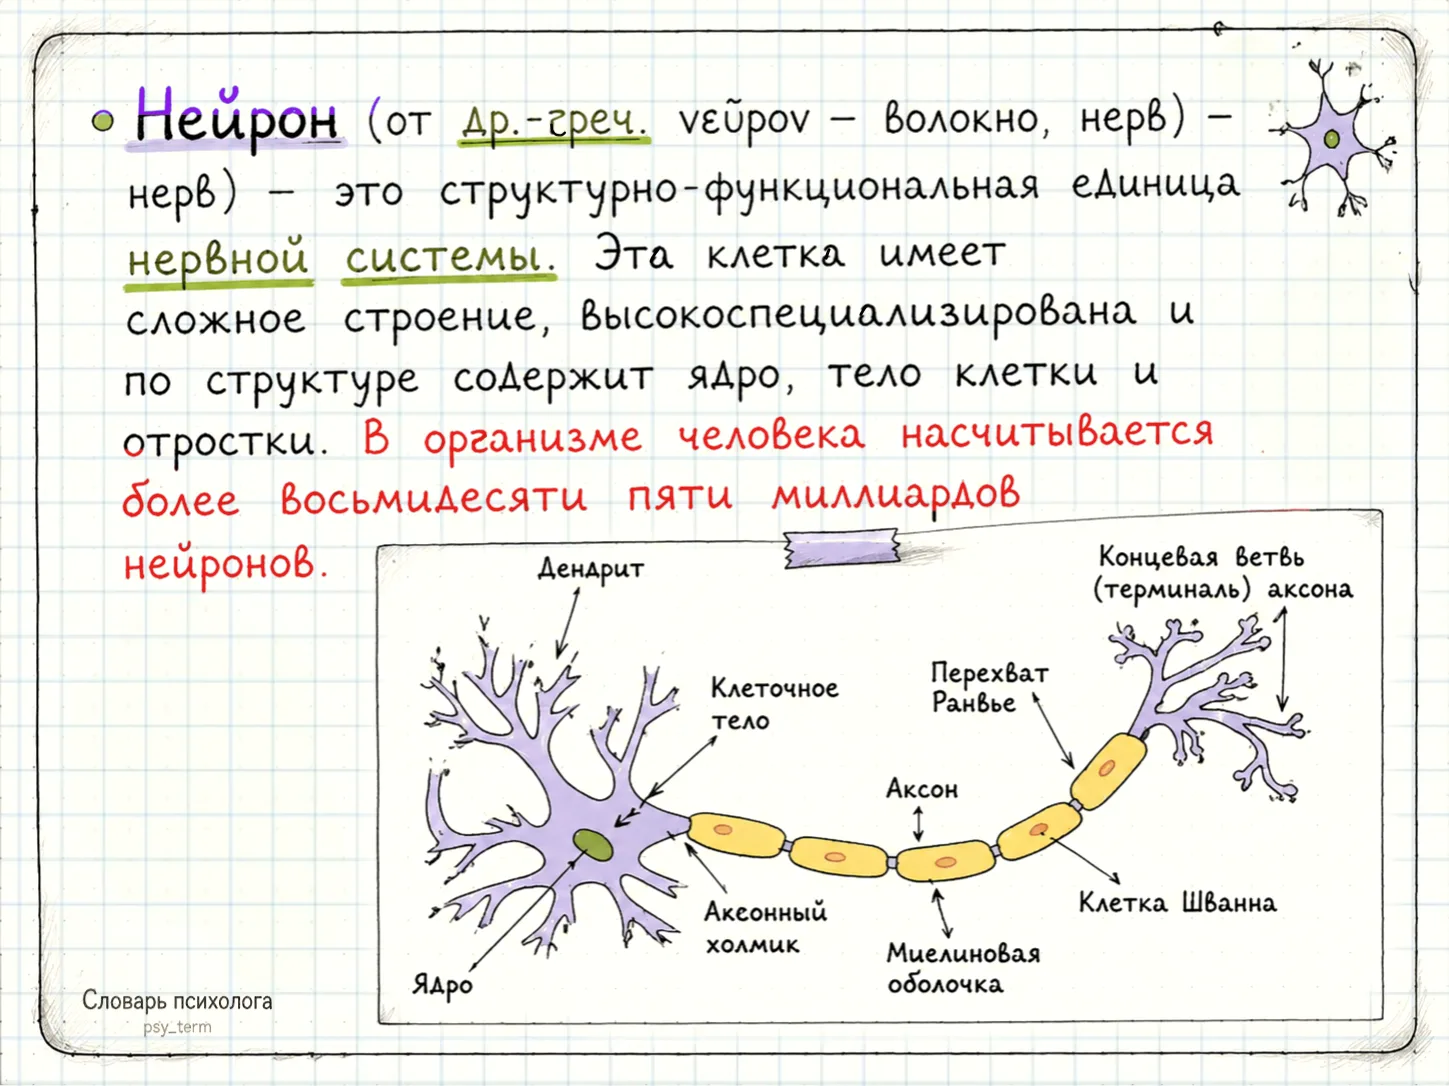 Нейрон (от др.-греч. νεῦρον – волокно, нерв) –
нерв) – это структурно-функциональная единица
нервной системы. Эта клетка имеет
сложное строение, высокоспециализирована и
по структуре содержит ядро, тело клетки и
отростки. В организме человека насчитывается
более восьмидесяти пяти миллиардов
нейронов.
Дендрит
Концевая ветвь
(терминаль) аксона
Клеточное
тело
Перехват
Ранвье
Аксон
Клетка Шванна
Аксонный
холмик
Миелиновая
оболочка
Ядро
Словарь психолога
psy_term